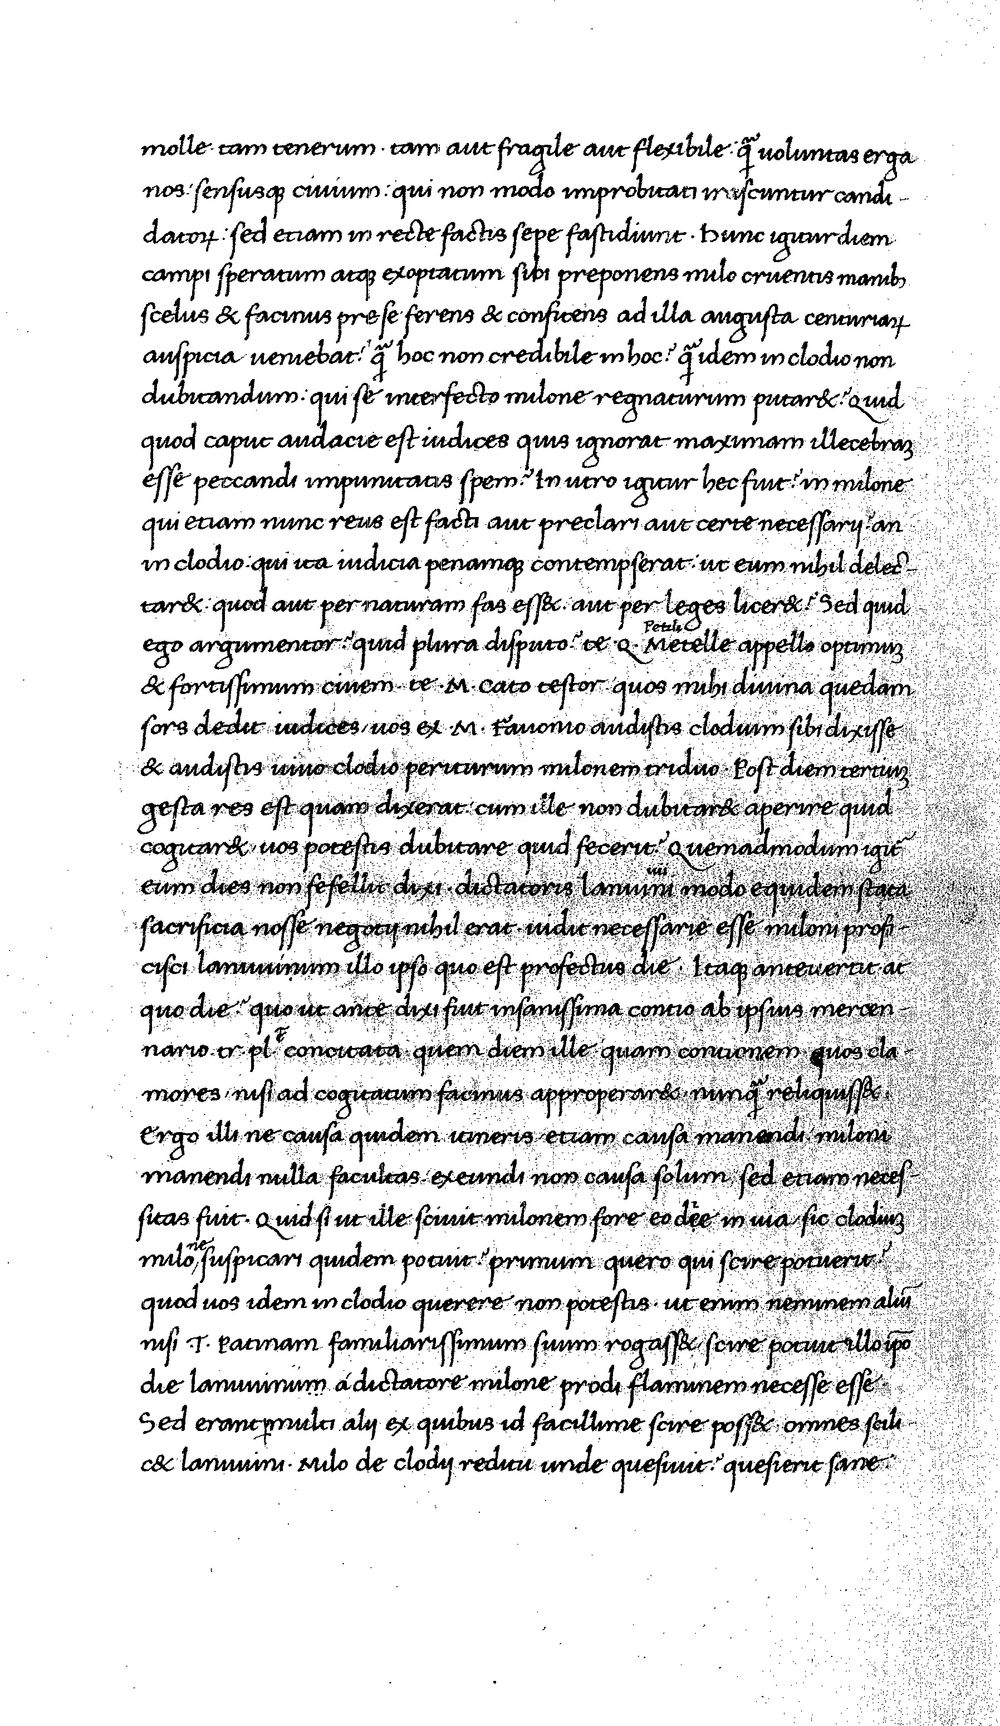 molle · tam tenerum · tam aut fragile aut flexibile · q̃ voluntas erga
nos : sensusq; civium : qui non modo improbitati irascuntur candi-
datorꝝ : sed etiam in recte factis sepe fastidiunt · hunc igitur diem
campi speratum atq; exoptatum sibi preponens milo cruentis manib;
scelus & facinus pre se ferens & confitens ad illa augusta centuriaꝝ
auspicia veniebat? q̃ hoc non credibile in hoc? q̃ idem in clodio non
dubitandum : qui se interfecto milone regnaturum putar&? Quid
quod caput audacie est iudices quis ignorat maximam illecebraꝫ
esse peccandi impunitatis spem? In utro igitur hec fuit? in milone
qui etiam nunc reus est facti aut preclari aut certe necessarij? an
in clodio qui ita iudicia penamq; contempserat · ut eum nihil delec-
tar& · quod aut per naturam fas ess& · aut per leges licer&? Sed quid
ego argumentor? quid plura disputo? te Q. Petili Metelle appello optimuꝫ
& fortissimum civem · te · M · Cato testor quos mihi divina quedam
sors dedit iudices · vos ex · M · Favonio audistis clodium sibi dixisse
& audistis vivo clodio periturum milonem triduo · Post diem tertiuꝫ
gesta res est quam dixerat · cum ille non dubitar& aperire quid
cogitar& · vos potestis dubitare quid fecerit? Quemadmodum igit̃
eum dies non fefellit dixi · dictatoris lanuvini modo equidem stata
sacrificia nosse negotij nihil erat · vidit necessarie esse miloni profi-
cisci lanuvinum illo ipso quo est profectus die · Itaq; antevertit at
quo die? quo ut ante dixi fuit insanissima contio ab ipsius mercen-
nario tr pl concitata quem diem ille quam contionem quos cla-
mores · nisi ad cogitatum facinus approperar& nunq̃ reliquiss& ·
Ergo illi ne causa quidem itineris · etiam causa manendi · miloni
manendi nulla facultas · exeundi non causa solum, sed etiam neces-
sitas fuit · Quid si ut ille scivit milonem fore eo dẽe in via, sic clodiuꝫ
milonẽ suspicari quidem potuit? primum quero qui scire potuerit?
quod vos idem in clodio querere non potestis · ut enim neminem aliũ
nisi · T · Patinam familiarissimum suum rogass& · scire potuit illo ip̃o
die lanuvinum a dictatore milone prodi flaminem necesse esse ·
Sed erant ꝑmulti alij ex quibus id facillime scire poss& omnes scili-
c& lanuvini · Milo de clodij reditu unde quesivit? quesierit sane ·